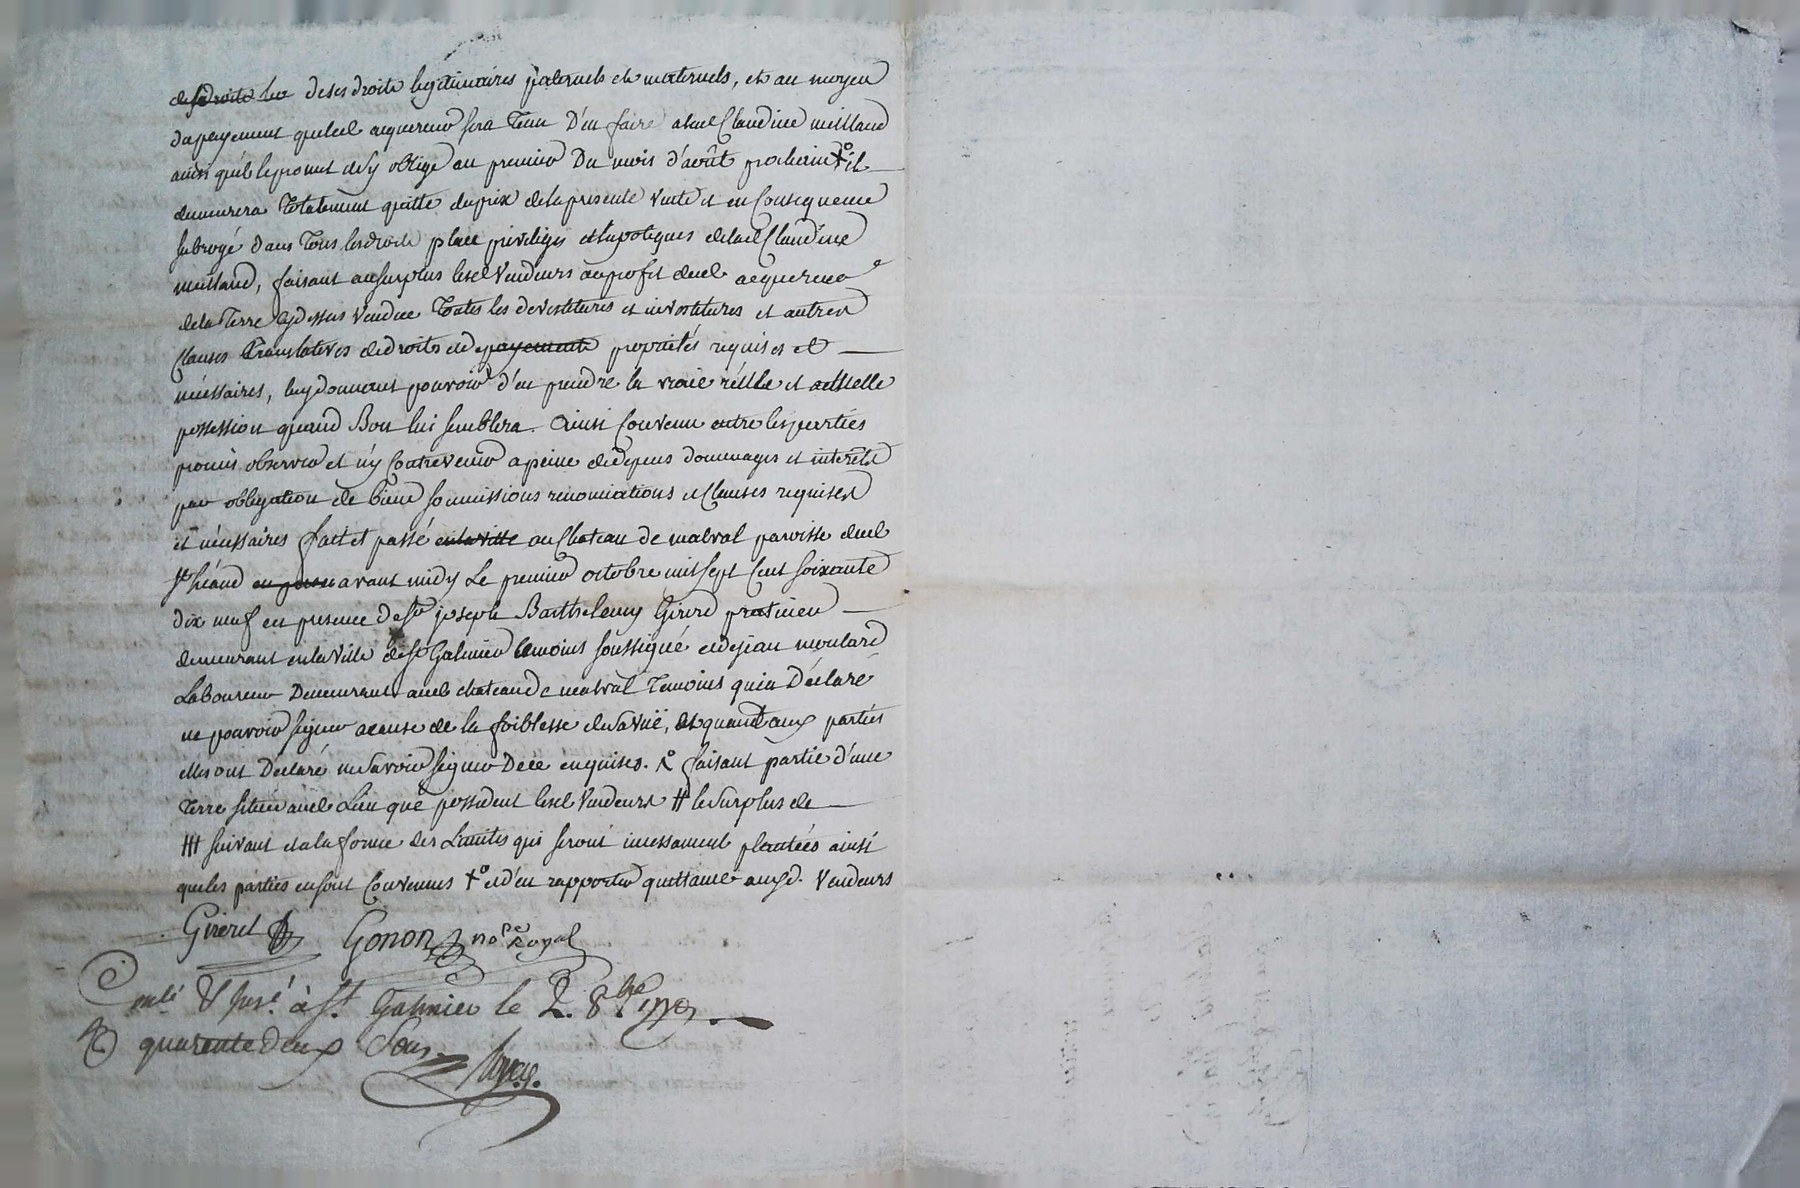 de ses droits legitimaires paternels et maternels, et au moyen
du payement que led acquereur sera tenu d'en faire alad Claudine meilland
ainsi qu'il le promet et s'y oblige au premier du mois d'août prochain +° il
demeurera totalement quitte du prix de la presente vente et en Consequence
subrogé dans tous les droits place privileges et hipoteques de lad Claudine
meilland, faisant au surplus lesd Vendeurs au profit dud acquereur
de la Terre cy dessus vendue toutes les devestitures et investitures et autres
Clauses translatives de droits et de payements proprietés requises et
nécessaires, luy donnant pouvoir d'en prendre la vraie réélle et actuelle
possession quand Bon lui semblera. Ainsi Convenu entre les parties
promis observer et n'y Contrevenir a peine de depens dommages et interets
par obligation de biens soumissions renonciations et Clauses requises
et nécessaires fait et passé en la ville au Chateau de malval paroisse dud
St héand avant midy Le premier octobre mil sept Cent soixante
dix neuf en presence de Sr joseph Barthelemy Girerd praticien
demeurant en la ville de St Galmier temoins soussigné et de jean moulard
Laboureur Demeurant aud chateau de malval Temoins qui a Déclaré
ne pouvoir signer acause de la foiblesse de sa vuë, et quant aux parties
elles ont Déclaré ne savoir signer De ce enquises. faisant partie d'une
Terre située aud Lieu que possedent lesd Vendeurs # le surplus de
suivant et a la forme des Limites qui seront incessament plantées ainsi
que les parties en sont Convenues +° et d'en rapporter quittance auxd. Vendeurs
Girerd Gonon nore Royal
Conlé à St. Galmier le 2. 8bre 1779.
quarente deux Sous.